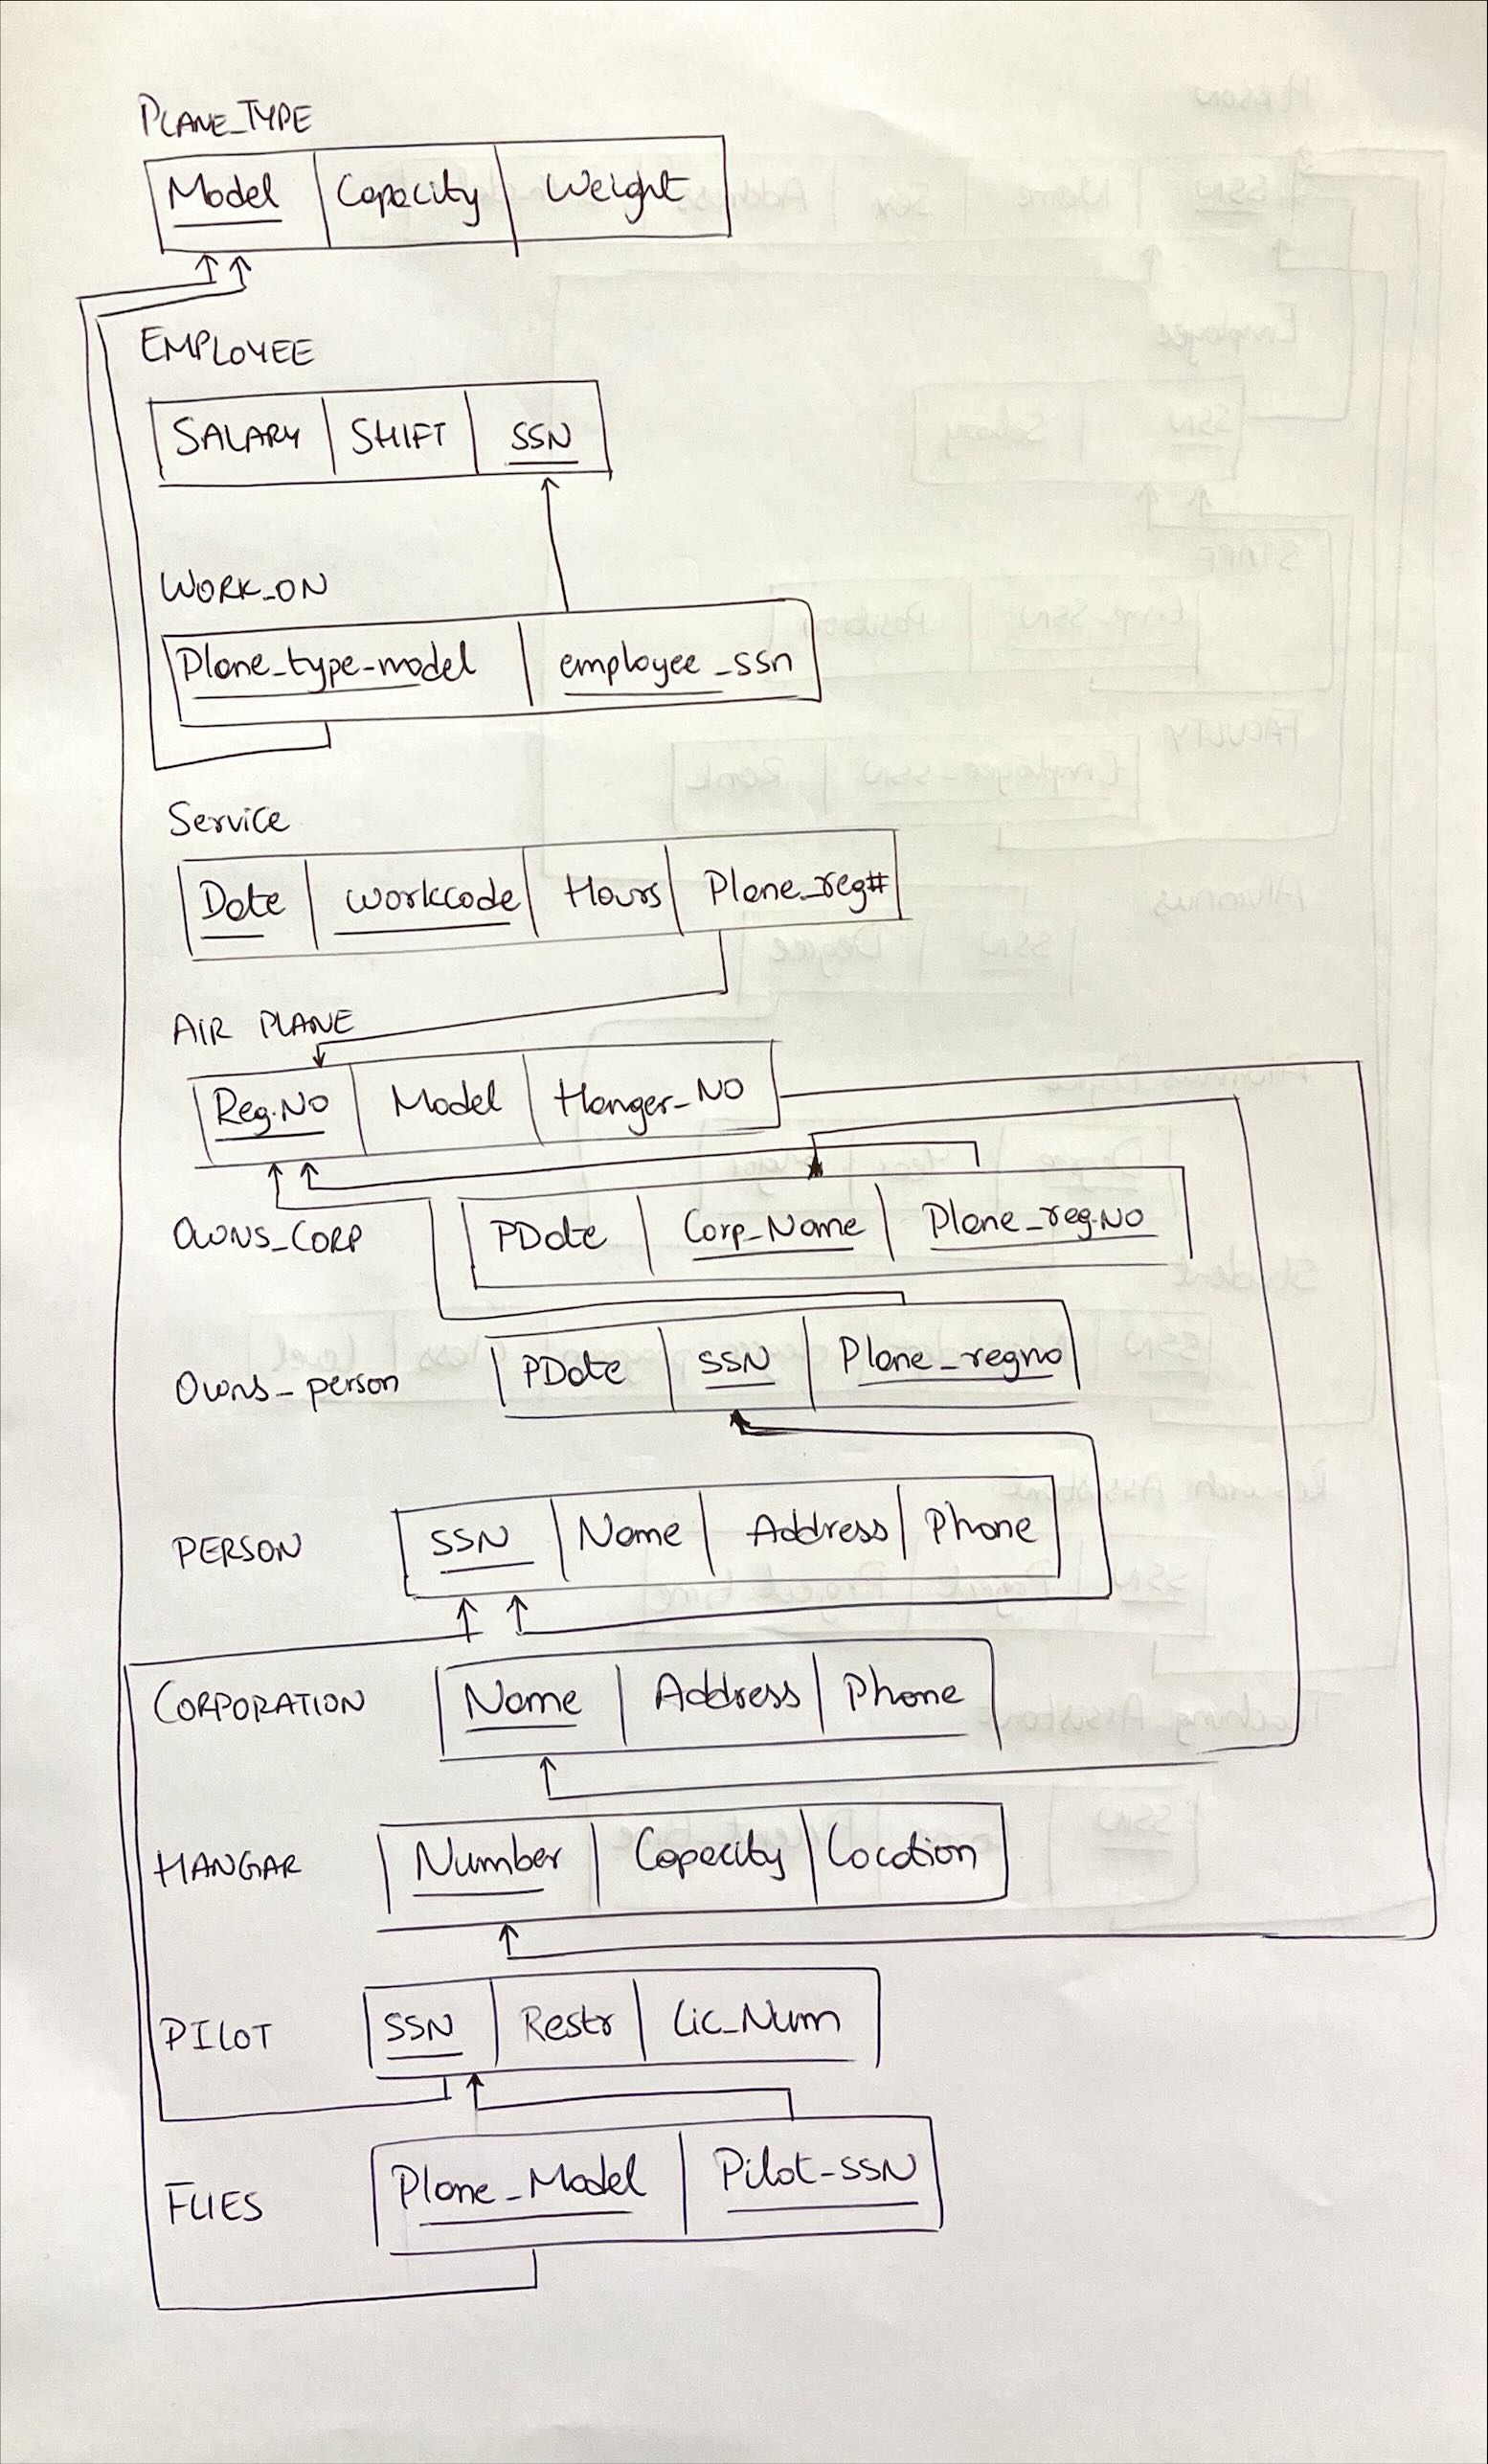 PLANE_TYPE
Model Capacity Weight
EMPLOYEE
SALARY SHIFT SSN
WORK_ON
Plane_type-model employee_ssn
Service
Date workcode Hours Plane_reg#
AIR PLANE
Reg.No Model Hanger_No
OWNS_CORP PDate Corp_Name Plane_reg.No
Owns_person PDate SSN Plane_regno
PERSON SSN Name Address Phone
CORPORATION Name Address Phone
HANGAR Number Capacity Location
PILOT SSN Restr Lic_Num
FLIES Plane_Model Pilot-SSN